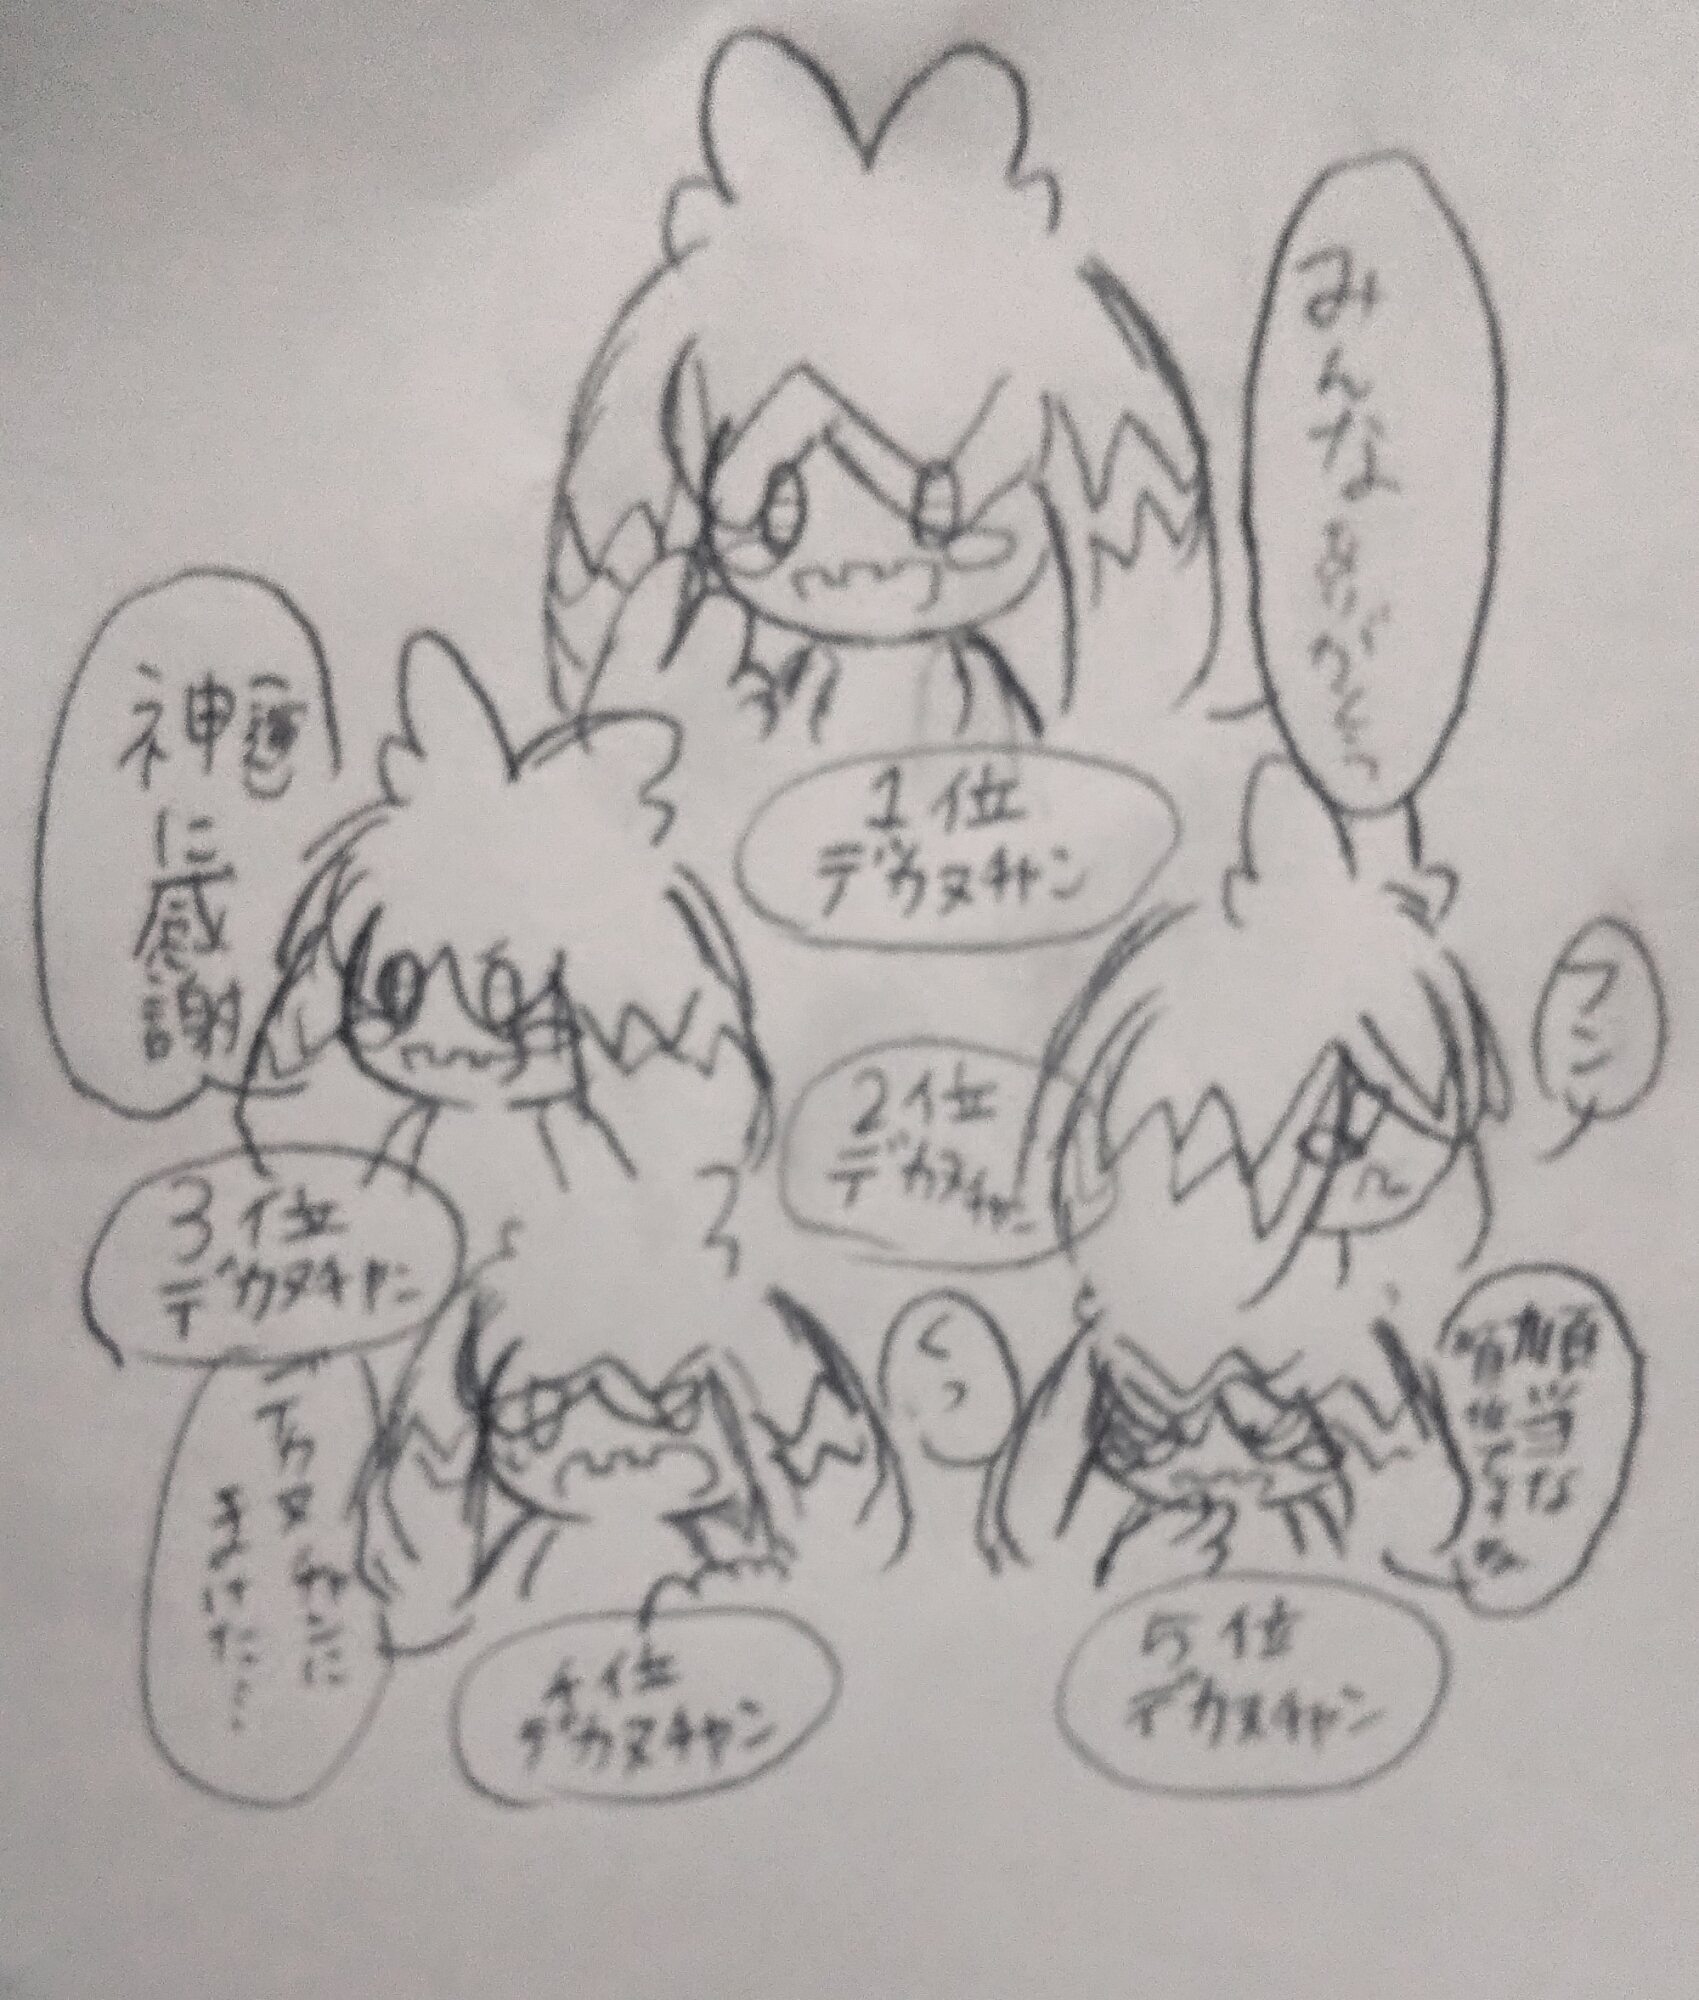 みんなありがとうっ
1位
デカヌチャン
神運に感謝
フン
2位
デカヌチャン
3位
デカヌチャン
デカヌチャンに
まけた…
くっ
妥当な
順位ですね
4位
デカヌチャン
5位
デカヌチャン